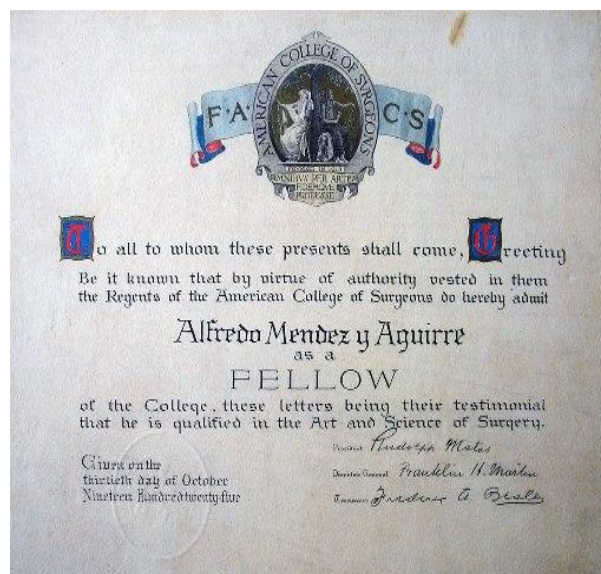 AMERICAN COLLEGE OF SVRGEONS
F·A·C·S
OMNIBVS PER ARTEM
FIDEMQVE
PRODESSE
To all to whom these presents shall come, Greeting
Be it known that by virtue of authority vested in them
the Regents of the American College of Surgeons do hereby admit
Alfredo Mendez y Aguirre
as a
FELLOW
of the College, these letters being their testimonial
that he is qualified in the Art and Science of Surgery.
President Rudolph Matas
Given on the
thirtieth day of October
Nineteen Hundred twenty-five
Director General Franklin H. Martin
Treasurer Frederic A. Besley